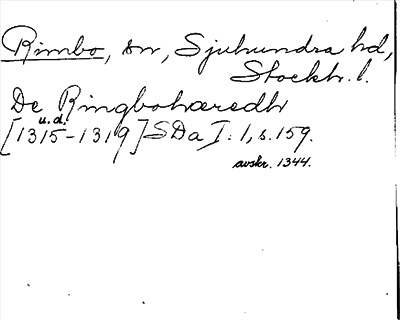 Rimbo, sn, Sjuhundra hd,
Stockh. l.
De Ringbohæredh
u.d.
[1315-1319] SDa I: 1, s. 159.
avskr. 1344.